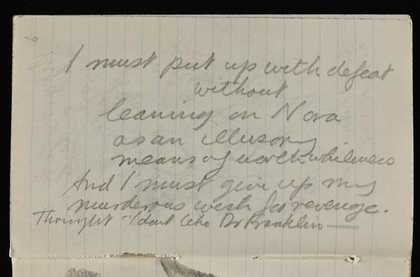 I must put up with defeat
without
leaning on Nora
as an illusory
means of worthwhileness
And I must give up my
murderous wish for revenge.
Thought - I dont like Dr Franklin —